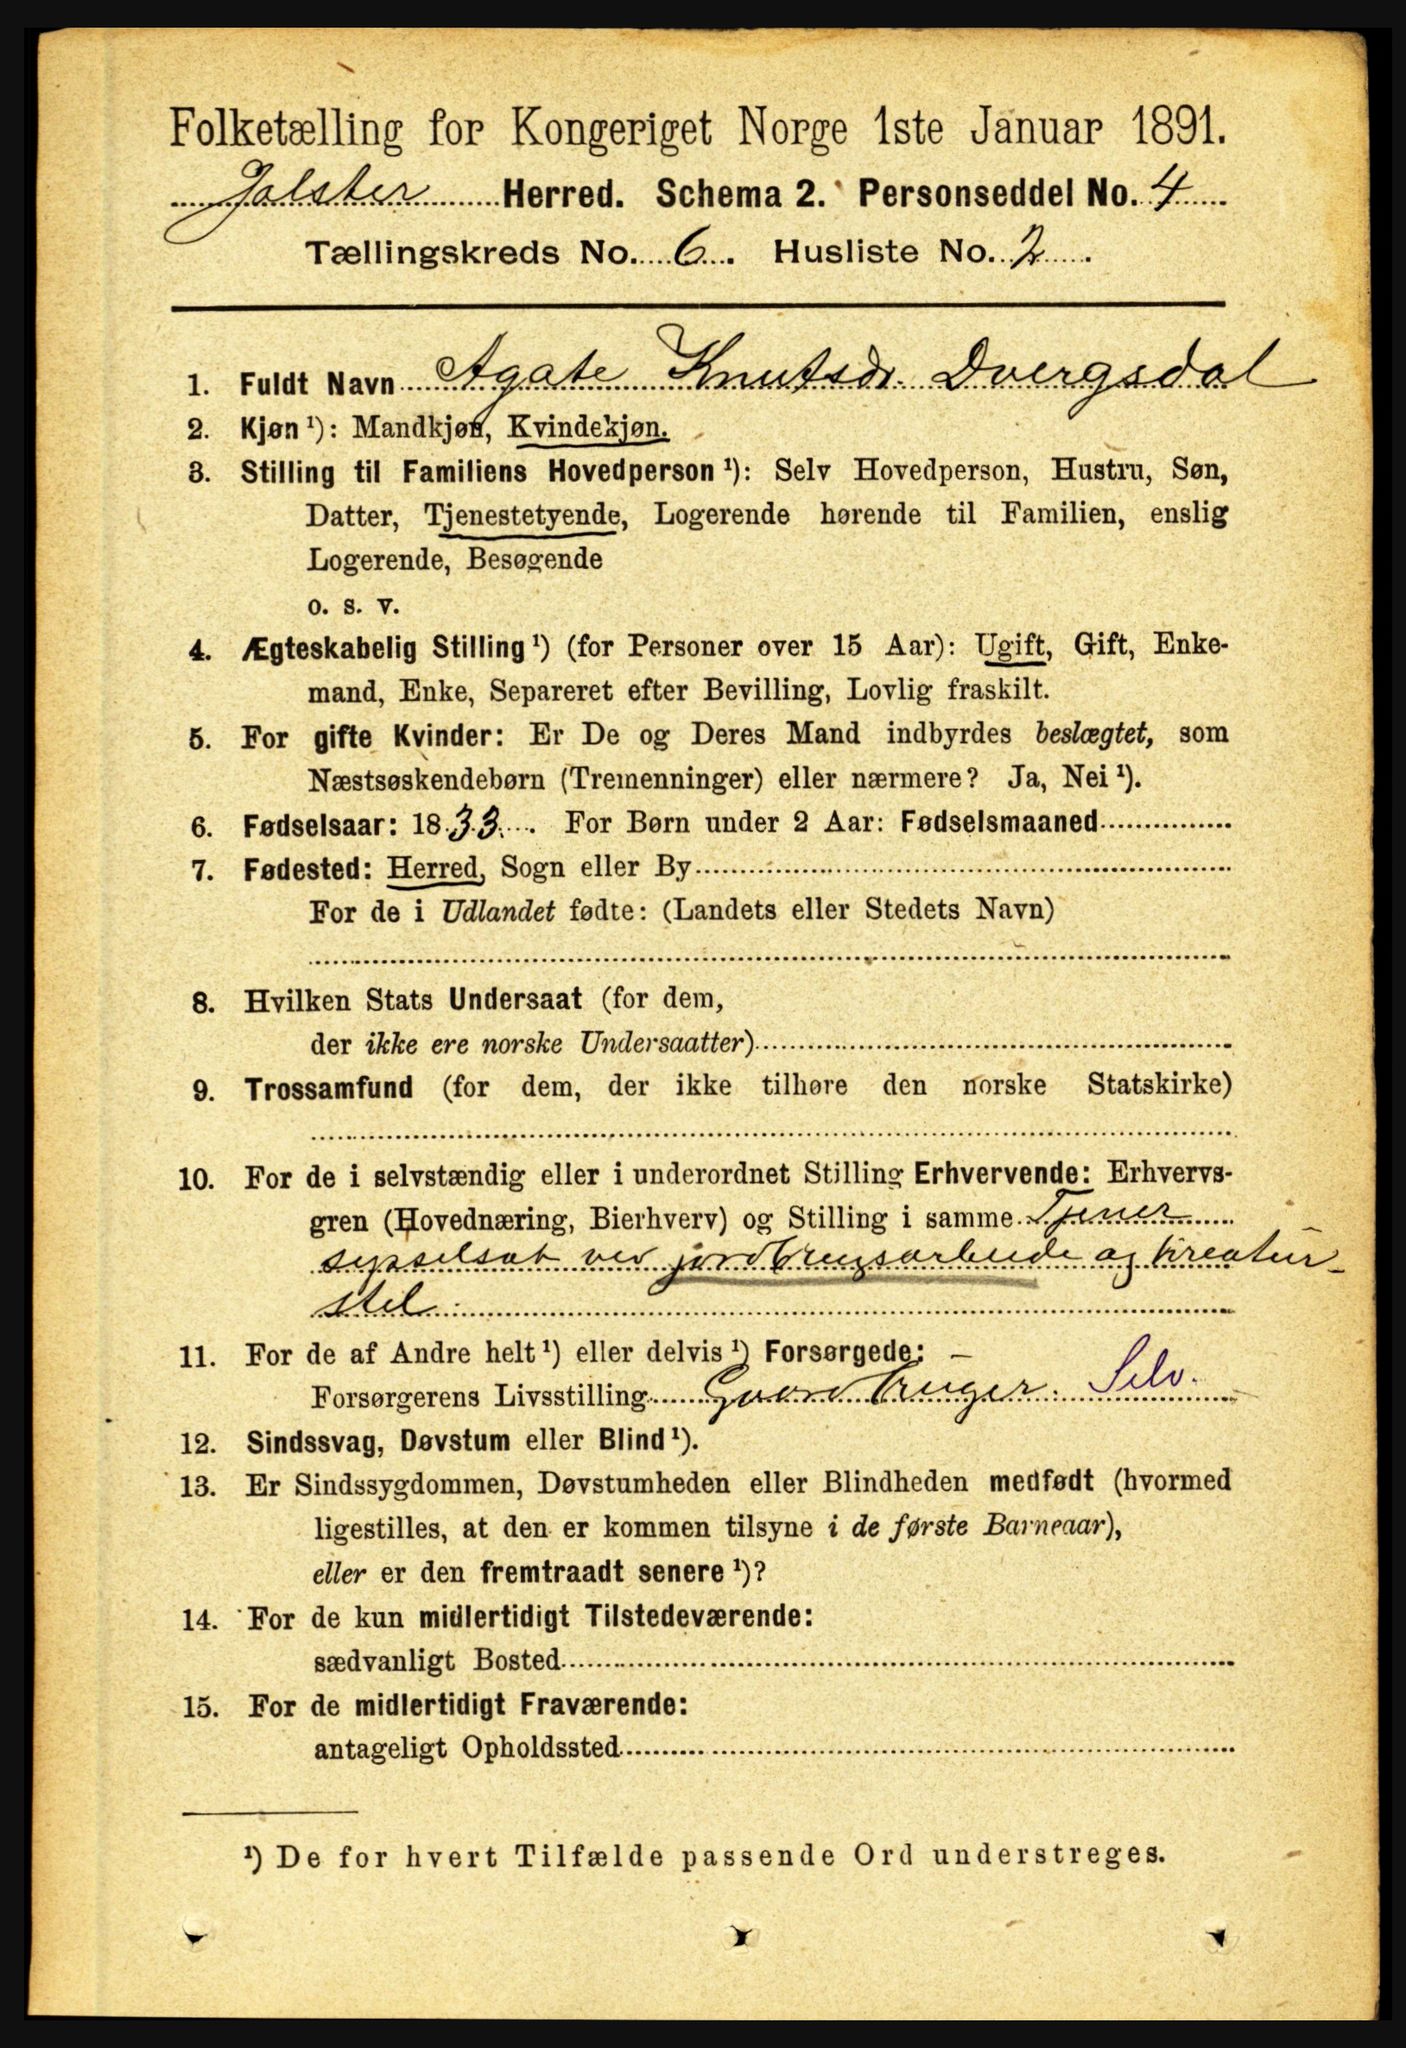 Folketælling for Kongeriget Norge 1ste Januar 1891.
Jolster Herred. Schema 2. Personseddel No. 4
Tællingskreds No. 6. Husliste No. 2.
1. Fuldt Navn Agate Knutsdr. Dvergsdal
2. Kjøn¹): Mandkjøn, Kvindekjøn.
3. Stilling til Familiens Hovedperson¹): Selv Hovedperson, Hustru, Søn,
Datter, Tjenestetyende, Logerende hørende til Familien, enslig
Logerende, Besøgende
o. s. v.
4. Ægteskabelig Stilling¹) (for Personer over 15 Aar): Ugift, Gift, Enke-
mand, Enke, Separeret efter Bevilling, Lovlig fraskilt.
5. For gifte Kvinder: Er De og Deres Mand indbyrdes beslægtet, som
Næstsøskendebørn (Tremenninger) eller nærmere? Ja, Nei¹).
6. Fødselsaar: 1833. For Børn under 2 Aar: Fødselsmaaned
7. Fødested: Herred, Sogn eller By
For de i Udlandet fødte: (Landets eller Stedets Navn)
8. Hvilken Stats Undersaat (for dem,
der ikke ere norske Undersaatter)
9. Trossamfund (for dem, der ikke tilhøre den norske Statskirke)
10. For de i selvstændig eller i underordnet Stilling Erhvervende: Erhvervs-
gren (Hovednæring, Bierhverv) og Stilling i samme Tjener
sysselsat ved jordbrugsarbeide og kreatur-
stel
11. For de af Andre helt¹) eller delvis¹) Forsørgede: –
Forsørgerens Livsstilling Gaardbruger. Selv.
12. Sindssvag, Døvstum eller Blind¹).
13. Er Sindssygdommen, Døvstumheden eller Blindheden medfødt (hvormed
ligestilles, at den er kommen tilsyne i de første Barneaar),
eller er den fremtraadt senere¹)?
14. For de kun midlertidigt Tilstedeværende:
sædvanligt Bosted
15. For de midlertidigt Fraværende:
antageligt Opholdssted
¹) De for hvert Tilfælde passende Ord understreges.